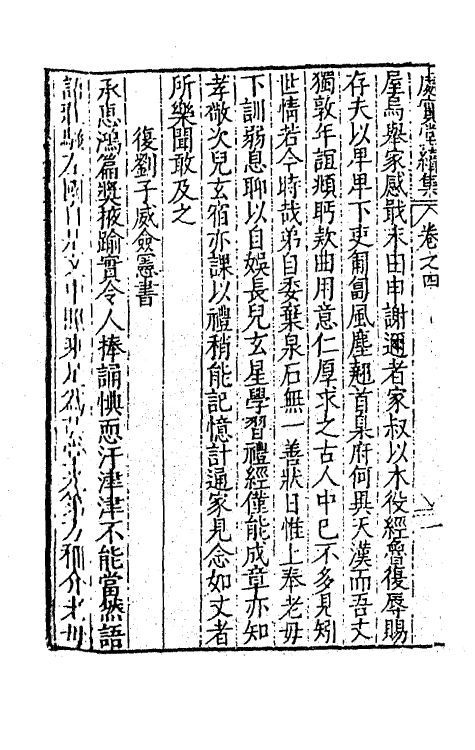 處實堂續集 卷之四
屋烏舉家感戢未由申謝邇者家叔以木役經曾復辱賜
存夫以卑卑下吏匍匐風塵翹首臬府何異天漢而吾丈
獨敦年誼頻眄欵曲用意仁厚求之古人中已不多見矧
世情若今時哉弟自委棄泉石無一善狀日惟上奉老毋
下訓弱息聊以自娛長兒玄星學習禮經僅能成章亦知
孝敬次兒玄宿亦課以禮稍能記憶計通家見念如丈者
所樂聞敢及之
復劉子威僉憲書
承惠鴻篇奬掖踰實令人捧誦愧恧汗津津不能當然語